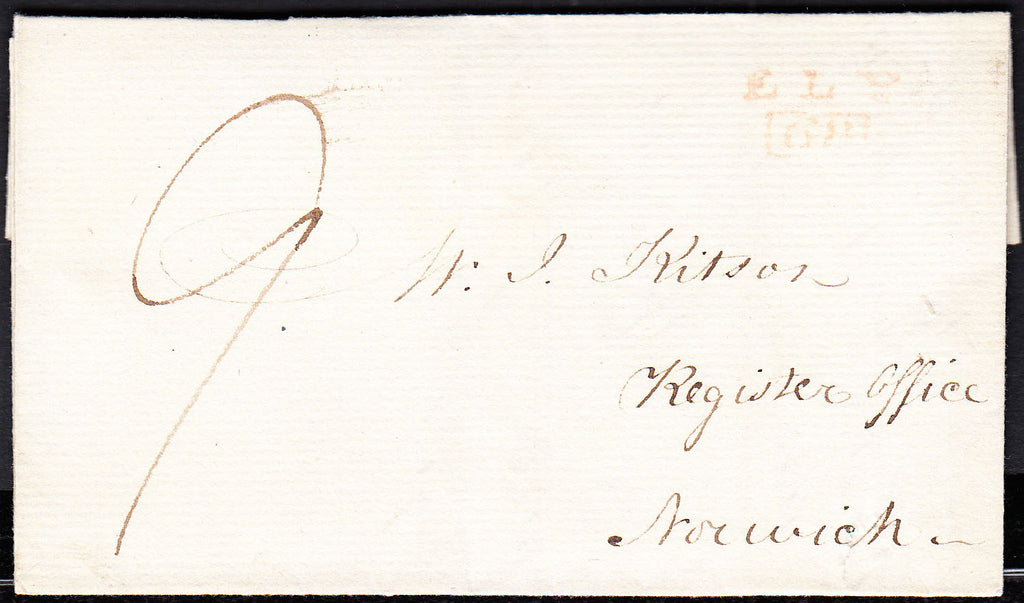 ELY
9
W. J. Kitson
Register Office
Norwich